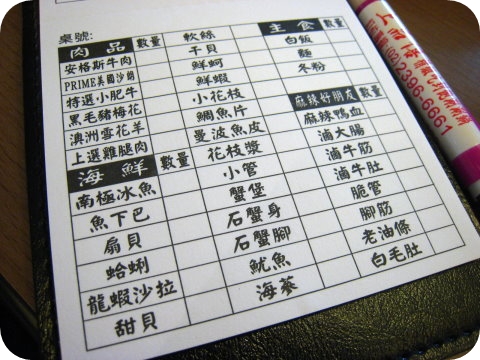 桌號:
肉品 數量
安格斯牛肉
PRIME美國沙朗
特選小肥牛
黑毛豬梅花
澳洲雪花羊
上選雞腿肉
海鮮 數量
南極冰魚
魚下巴
扇貝
蛤蜊
龍蝦沙拉
甜貝
軟絲 數量
干貝
鮮蚵
鮮蝦
小花枝
鯛魚片
曼波魚皮
花枝漿
小管
蟹堡
石蟹身
石蟹腳
魷魚
海蔘
主食 數量
白飯
麵
冬粉
麻辣好朋友 數量
麻辣鴨血
滷大腸
滷牛筋
滷牛肚
脆管
腳筋
老油條
白毛肚
(02)2396-6661